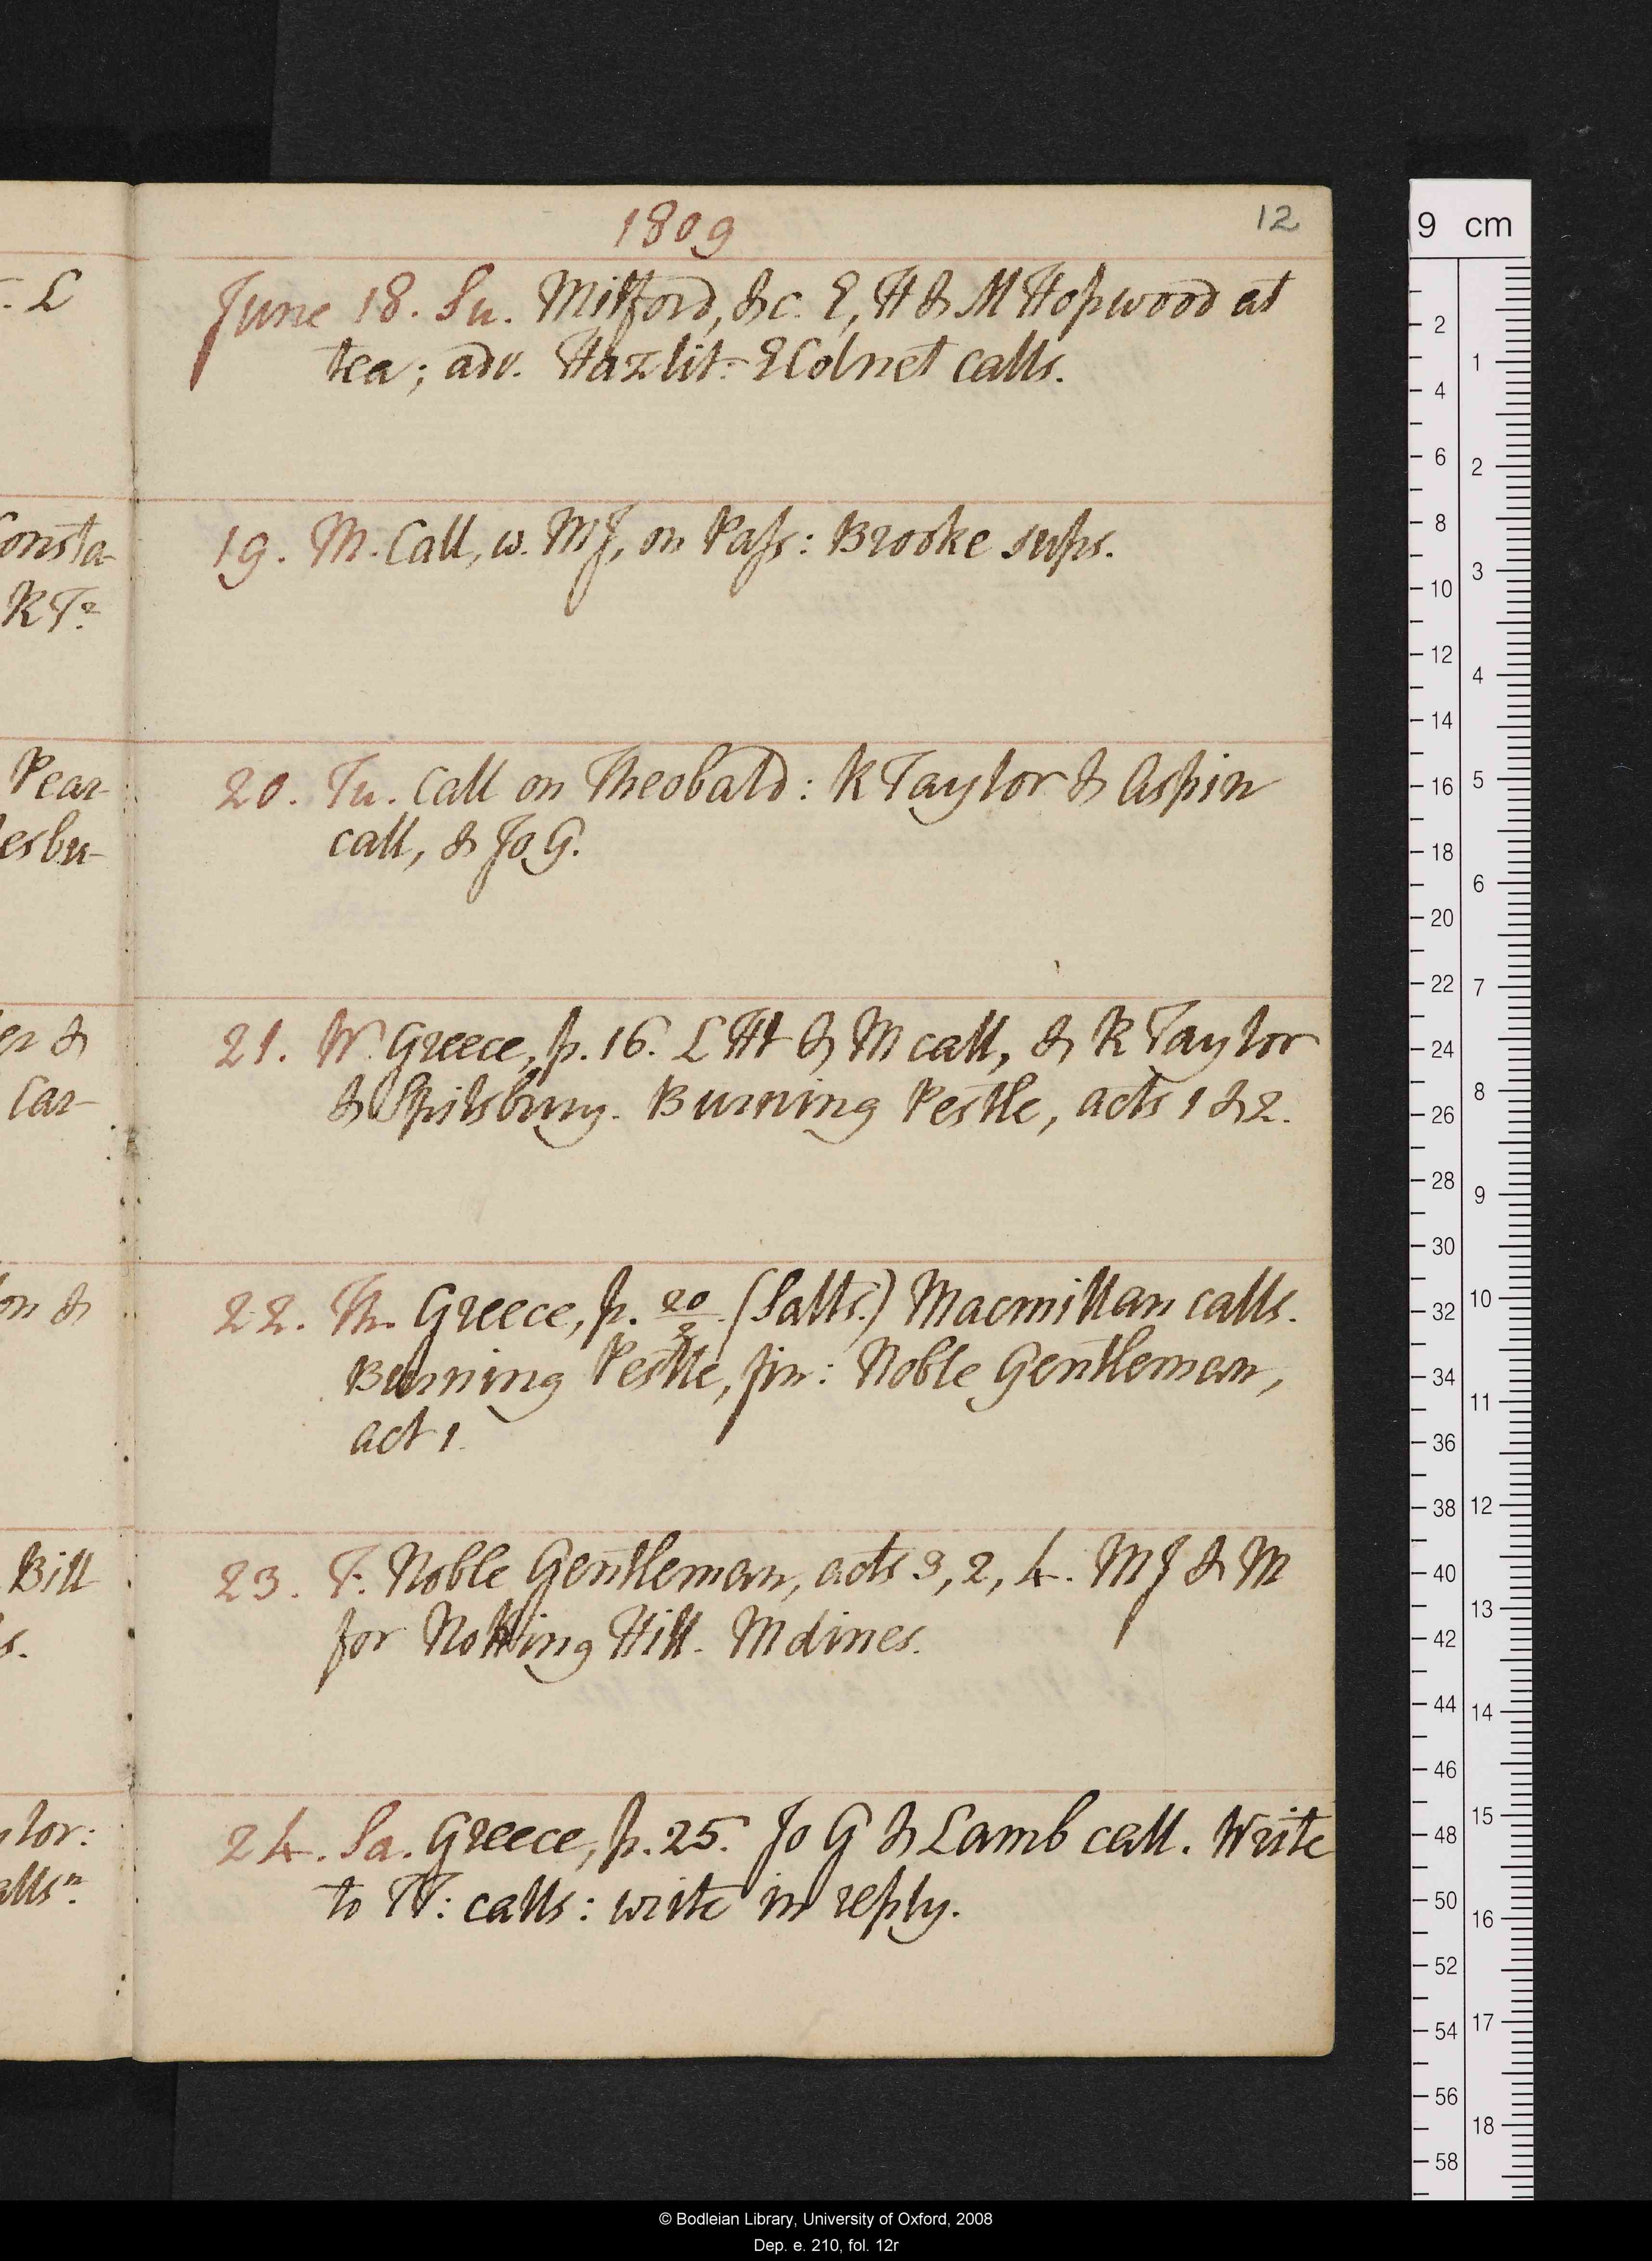 1809
12
June 18. Su. Mitford, &c. E, H & M Hopwood at
tea; adv. Hazlit: E Colnet calls.
19. M. Call, w. MJ, on Pass: Brooke sups.
20. Tu. Call on Theobald: R Taylor & Aspin
call, & Jo G.
21. W. Greece, p. 16. L Ht & M call, & R Taylor
& Spilsbury. Burning Pestle, acts 1 & 2.
22. Th. Greece, p. 20/2. (Salts.) Macmillan calls.
Burning Pestle, fin: Noble Gentleman,
act 1.
23. F. Noble Gentleman, acts 3, 2, 4. MJ & M
for Notting Hill. M dines.
24. Sa. Greece, p. 25. Jo G & Lamb call. Write
to TT: calls: write in reply.
. L
Consta-
RT?
Pear-
lesbu-
er &
Car-
on &
Bill
s.
ylor:
alls?
9 cm
2
4
6
8
10
12
14
16
18
20
22
24
26
28
30
32
34
36
38
40
42
44
46
48
50
52
54
56
58
1
2
3
4
5
6
7
8
9
10
11
12
13
14
15
16
17
18
© Bodleian Library, University of Oxford, 2008
Dep. e. 210, fol. 12r